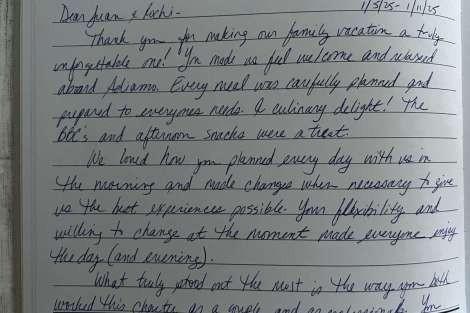 Dear Juan & Rochi- 1/5/25-1/11/25
Thank you for making our family vacation a truly
unforgettable one! You made us feel welcome and relaxed
aboard Adiamo. Every meal was carefully planned and
prepared to everyones needs. A culinary delight! The
BBQ's and afternoon snacks were a treat.
We loved how you planned every day with us in
the morning and made changes when necessary to give
us the best experiences possible. Your flexibility and
willing to change at the moment made everyone enjoy
the day (and evening).
What truly stood out the most is the way you both
worked this charter as a couple and as professionals. You